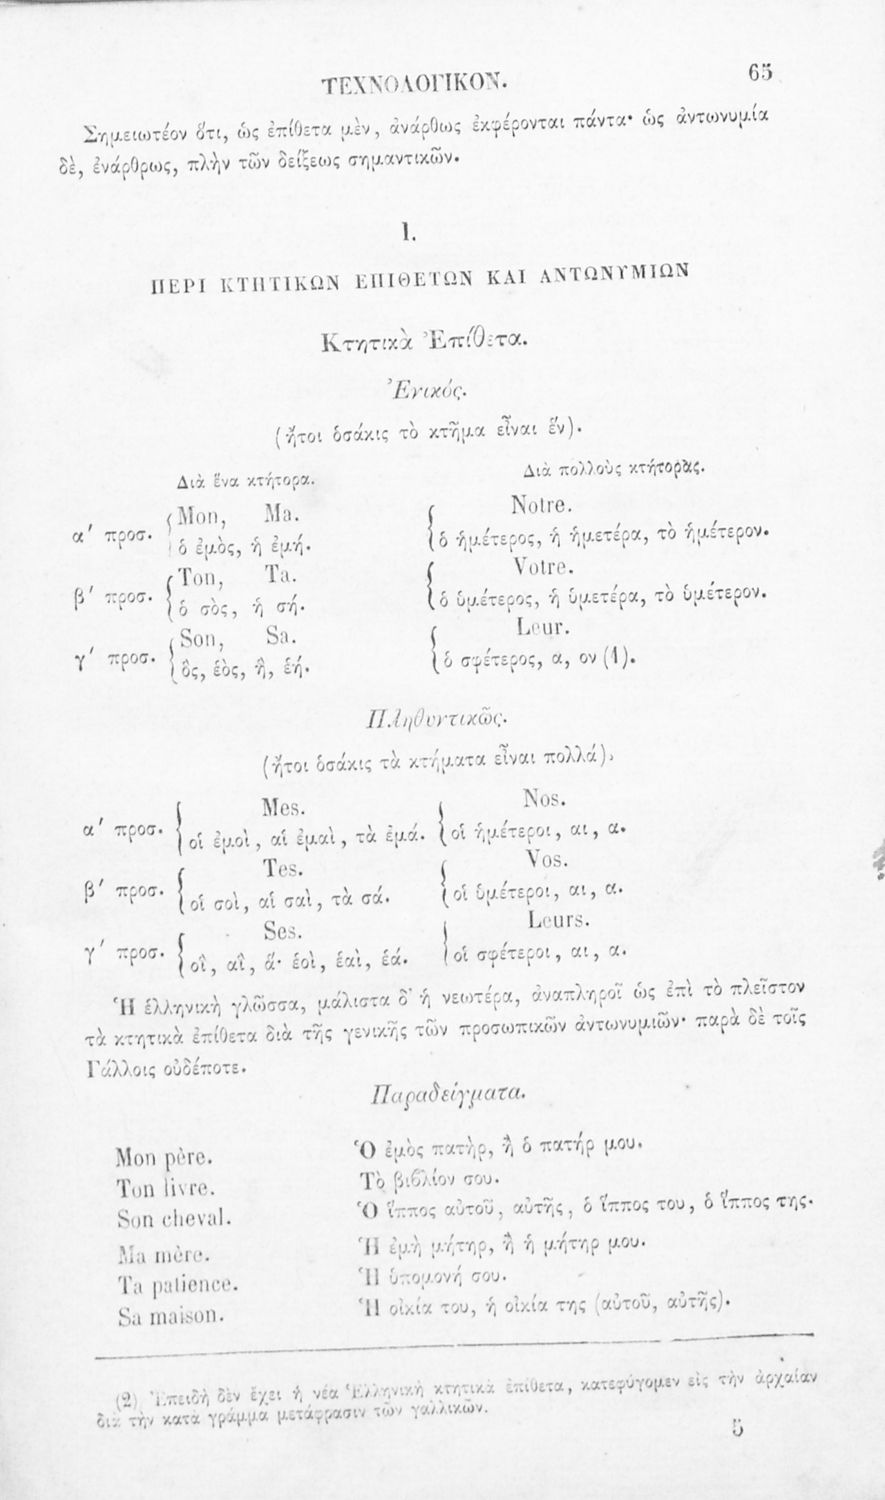 ΤΕΧΝΟΛΟΓΙΚΟΝ. 65
Σημειωτέον ὅτι, ὡς ἐπίθετα μὲν, ἀνάρθως ἐκφέρονται πάντα· ὡς ἀντωνυμία
δὲ, ἐνάρθρως, πλὴν τῶν δείξεως σημαντικῶν.
1.
ΠΕΡΙ ΚΤΗΤΙΚΩΝ ΕΠΙΘΕΤΩΝ ΚΑΙ ΑΝΤΩΝΥΜΙΩΝ
Κτητικὰ Ἐπίθετα.
Ἑνικός.
(ἤτοι ὁσάκις τὸ κτῆμα εἶναι ἕν).
Διὰ ἕνα κτήτορα. Διὰ πολλοὺς κτήτορας.
Mon, Ma. Notre.
α΄ προσ. ὁ ἐμὸς, ἡ ἐμή. ὁ ἡμέτερος, ἡ ἡμετέρα, τὸ ἡμέτερον.
Ton, Ta. Votre.
β΄ προσ. ὁ σὸς, ἡ σή. ὁ ὑμέτερος, ἡ ὑμετέρα, τὸ ὑμέτερον.
Son, Sa. Leur.
γ΄ προσ. ὃς, ἑὸς, ἣ, ἑή. ὁ σφέτερος, α, ον (1).
Πληθυντικῶς.
(ἤτοι ὁσάκις τὰ κτήματα εἶναι πολλά),
Mes. Nos.
α΄ προσ. οἱ ἐμοὶ, αἱ ἐμαὶ, τὰ ἐμά. οἱ ἡμέτεροι, αι, α.
Tes. Vos.
β΄ προσ. οἱ σοὶ, αἱ σαὶ, τὰ σά. οἱ ὑμέτεροι, αι, α.
Ses. Leurs.
γ΄ προσ. οἳ, αἳ, ἅ· ἑοὶ, ἑαὶ, ἑά. οἱ σφέτεροι, αι, α.
Ἡ ἑλληνικὴ γλῶσσα, μάλιστα δ' ἡ νεωτέρα, ἀναπληροῖ ὡς ἐπὶ τὸ πλεῖστον
τὰ κτητικὰ ἐπίθετα διὰ τῆς γενικῆς τῶν προσωπικῶν ἀντωνυμιῶν· παρὰ δὲ τοῖς
Γάλλοις οὐδέποτε.
Παραδείγματα.
Mon père. Ὁ ἐμὸς πατὴρ, ἢ ὁ πατήρ μου.
Ton livre. Τὸ βιβλίον σου.
Son cheval. Ὁ ἵππος αὐτοῦ, αὐτῆς, ὁ ἵππος του, ὁ ἵππος της.
Ma mère. Ἡ ἐμὴ μήτηρ, ἢ ἡ μήτηρ μου.
Ta patience. Ἡ ὑπομονή σου.
Sa maison. Ἡ οἰκία του, ἡ οἰκία της (αὐτοῦ, αὐτῆς).
(2) Ἐπειδὴ δὲν ἔχει ἡ νέα Ἑλληνικὴ κτητικὰ ἐπίθετα, κατεφύγομεν εἰς τὴν ἀρχαίαν
διὰ τὴν κατὰ γράμμα μετάφρασιν τῶν γαλλικῶν.
5